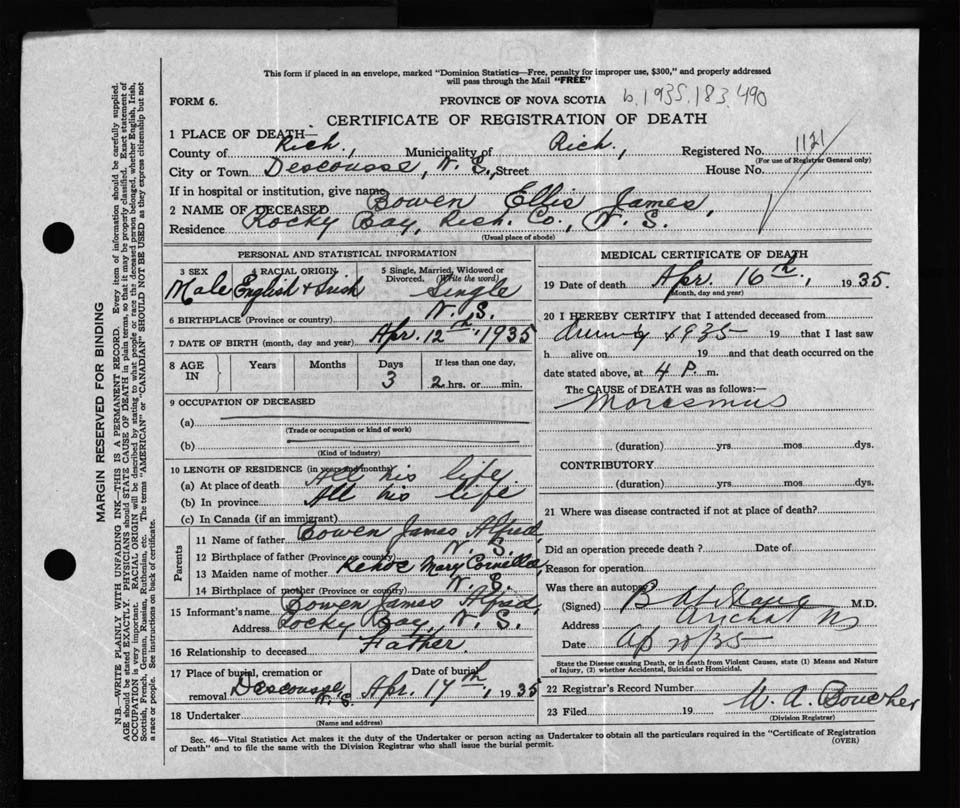 This form if placed in an envelope, marked "Dominion Statistics—Free, penalty for improper use, $300," and properly addressed
will pass through the Mail "FREE"
FORM 6.
PROVINCE OF NOVA SCOTIA
b.1935.183.490
CERTIFICATE OF REGISTRATION OF DEATH
1 PLACE OF DEATH—
County of Rich., Municipality of Rich., Registered No. 1121
(For use of Registrar General only)
City or Town Descousse, N.S., Street House No.
If in hospital or institution, give name
2 NAME OF DECEASED Bowen Ellis James,
Residence Rocky Bay, Rich. Co., N.S.
(Usual place of abode)
PERSONAL AND STATISTICAL INFORMATION
3 SEX
Male
4 RACIAL ORIGIN
English & Irish
5 Single, Married, Widowed or
Divorced. (Write the word)
Single
6 BIRTHPLACE (Province or country) N.S.
7 DATE OF BIRTH (month, day and year) Apr. 12th, 1935
8 AGE
IN
Years
Months
Days
3
If less than one day,
2 hrs. or min.
9 OCCUPATION OF DECEASED
(a)
(Trade or occupation or kind of work)
(b)
(Kind of industry)
10 LENGTH OF RESIDENCE (in years and months)
(a) At place of death All his life.
(b) In province All his life
(c) In Canada (if an immigrant)
Parents
11 Name of father Bowen James Alfred,
12 Birthplace of father (Province or country) N.S.
13 Maiden name of mother Kehoe Mary
14 Birthplace of mother (Province or country) N.S.
15 Informant's name Bowen James Alfred,
Address Rocky Bay, N.S.
16 Relationship to deceased Father.
17 Place of burial, cremation or
removal Descousse, N.S.
Date of burial
Apr. 17th, 1935
18 Undertaker
(Name and address)
MEDICAL CERTIFICATE OF DEATH
19 Date of death Apr. 16th, 1935.
(Month, day and year)
20 I HEREBY CERTIFY that I attended deceased from
1935 19 that I last saw
h alive on 19 and that death occurred on the
date stated above, at 4 P. m.
The CAUSE of DEATH was as follows:—
Morasmus
(duration) yrs. mos. dys.
CONTRIBUTORY
(duration) yrs. mos. dys.
21 Where was disease contracted if not at place of death?
Did an operation precede death ? Date of
Reason for operation
Was there an autopsy
(Signed) M.D.
Address Arichat NS
Date Ap 20/35
State the Disease causing Death, or in death from Violent Causes, state (1) Means and Nature
of Injury, (2) whether Accidental, Suicidal or Homicidal.
22 Registrar's Record Number
23 Filed 19 W. A. Boucher
(Division Registrar)
Sec. 46—Vital Statistics Act makes it the duty of the Undertaker or person acting as Undertaker to obtain all the particulars required in the "Certificate of Registration
of Death" and to file the same with the Division Registrar who shall issue the burial permit.
(OVER)
MARGIN RESERVED FOR BINDING
N.B.—WRITE PLAINLY WITH UNFADING INK—THIS IS A PERMANENT RECORD. Every item of information should be carefully supplied.
AGE should be stated EXACTLY. PHYSICIANS should STATE CAUSE OF DEATH in plain terms, so that it may be properly classified. Exact statement of
OCCUPATION is very important. RACIAL ORIGIN will be described by stating to what people or race the deceased person belonged, whether English, Irish,
Scottish, French, German, Russian, Ruthenian, etc. The terms "AMERICAN" or "CANADIAN" SHOULD NOT BE USED as they express citizenship but not
a race or people. See instructions on back of certificate.